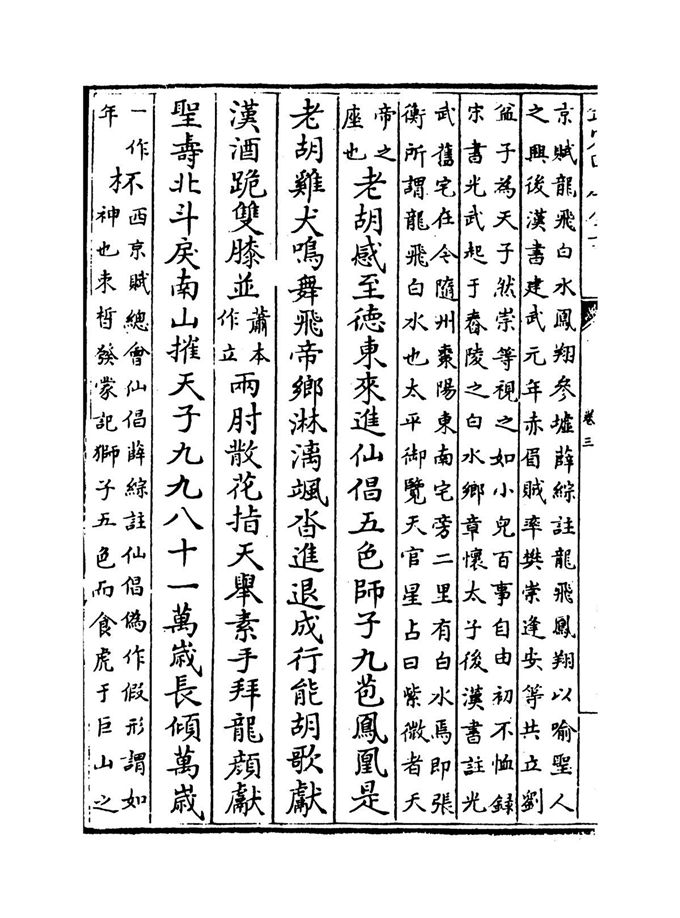 卷三
京賦龍飛白水鳳翔參墟薛綜註龍飛鳳翔以喻聖人
之興後漢書建武元年赤眉賊率樊崇逢安等共立劉
盆子為天子然崇等視之如小兒百事自由初不恤録
宋書光武起于舂陵之白水鄉章懷太子後漢書註光
武舊宅在今隨州棗陽東南宅旁二里有白水焉即張
衡所謂龍飛白水也太平御覽天官星占曰紫微者天
帝之座也老胡感至德東來進仙倡五色師子九苞鳳凰是
老胡雞犬鳴舞飛帝鄉淋漓颯沓進退成行能胡歌獻
漢酒跪雙膝並蕭本作立兩肘散花指天舉素手拜龍顔獻
聖壽北斗戾南山摧天子九九八十一萬歲長傾萬歲
一作年杯西京賦總會仙倡薛綜註仙倡偽作假形謂如
神也束晳發蒙記獅子五色而食虎于巨山之